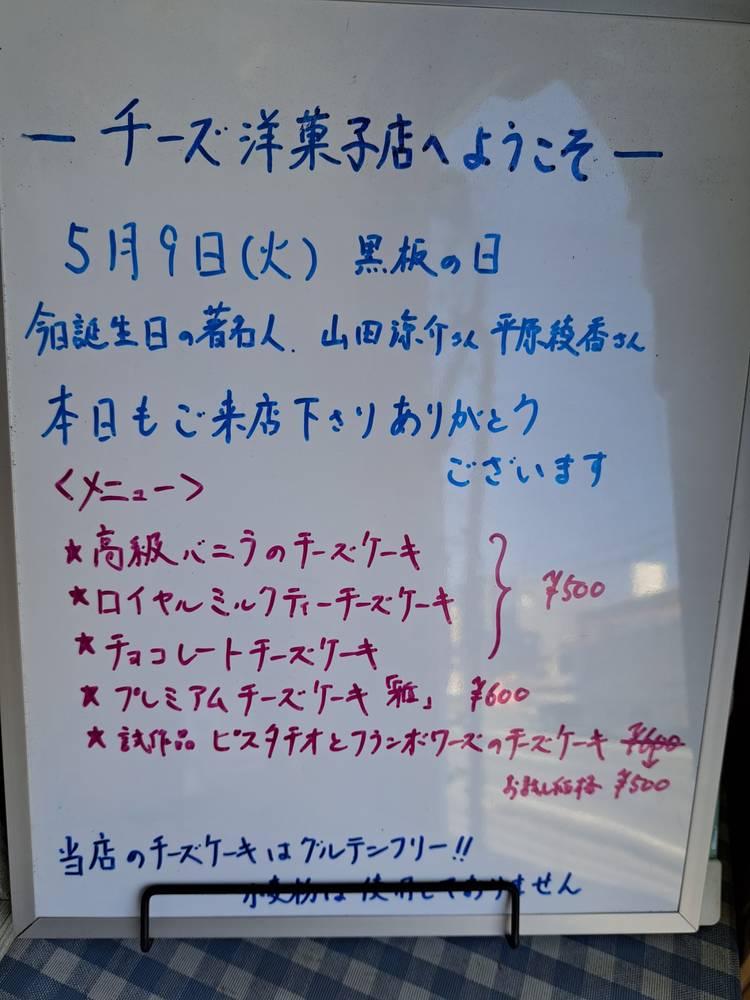 ー チーズ洋菓子店へようこそ ー
5月9日(火) 黒板の日
今日誕生日の著名人. 山田涼介さん 平原綾香さん
本日もご来店下さりありがとう
ございます
<メニュー>
★高級バニラのチーズケーキ
★ロイヤルミルクティーチーズケーキ
★チョコレートチーズケーキ
¥500
★プレミアムチーズケーキ「雅」 ¥600
★試作品 ピスタチオとフランボワーズのチーズケーキ ¥600
お試し価格 ¥500
当店のチーズケーキはグルテンフリー!!
小麦粉は使用しておりません